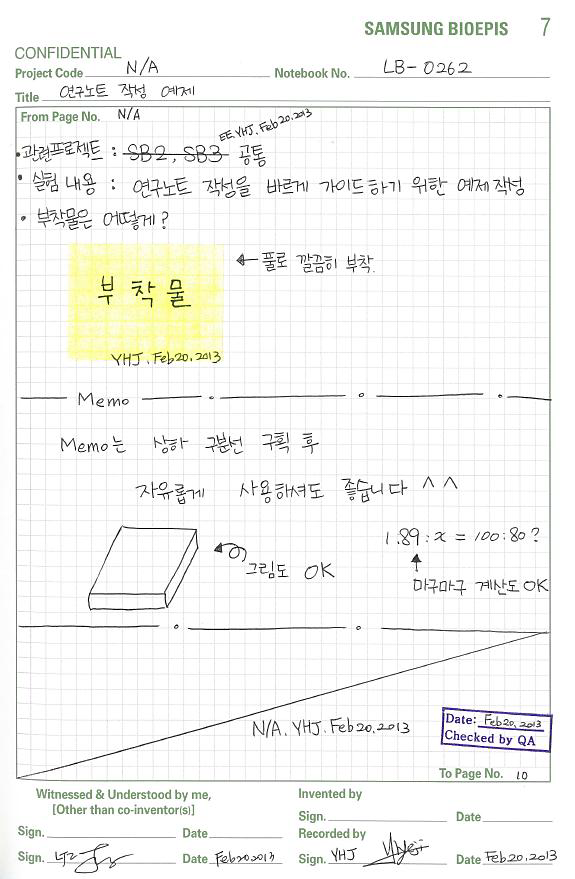 SAMSUNG BIOEPIS 7
CONFIDENTIAL
Project Code N/A Notebook No. LB-0262
Title 연구노트 작성 예제
From Page No. N/A
EE.YHJ.Feb20.2013
• 관련프로젝트 : SB2, SB3 공통
• 실험 내용 : 연구노트 작성을 바르게 가이드하기 위한 예제 작성
• 부착물은 어떻게?
← 풀로 깔끔히 부착.
부 착 물
YHJ.Feb20.2013
Memo
Memo는 상하 구분선 구획 후
자유롭게 사용하셔도 좋습니다 ^^
1.89 : x = 100 : 80 ?
그림도 OK
마구마구 계산도 OK
N/A. YHJ. Feb20.2013
Date: Feb20.2013
Checked by QA
To Page No. 10
Witnessed & Understood by me,
[Other than co-inventor(s)]
Invented by
Sign. Date
Sign. Date
Recorded by
Sign. Date Feb20 2013
Sign. YHJ Date Feb20.2013